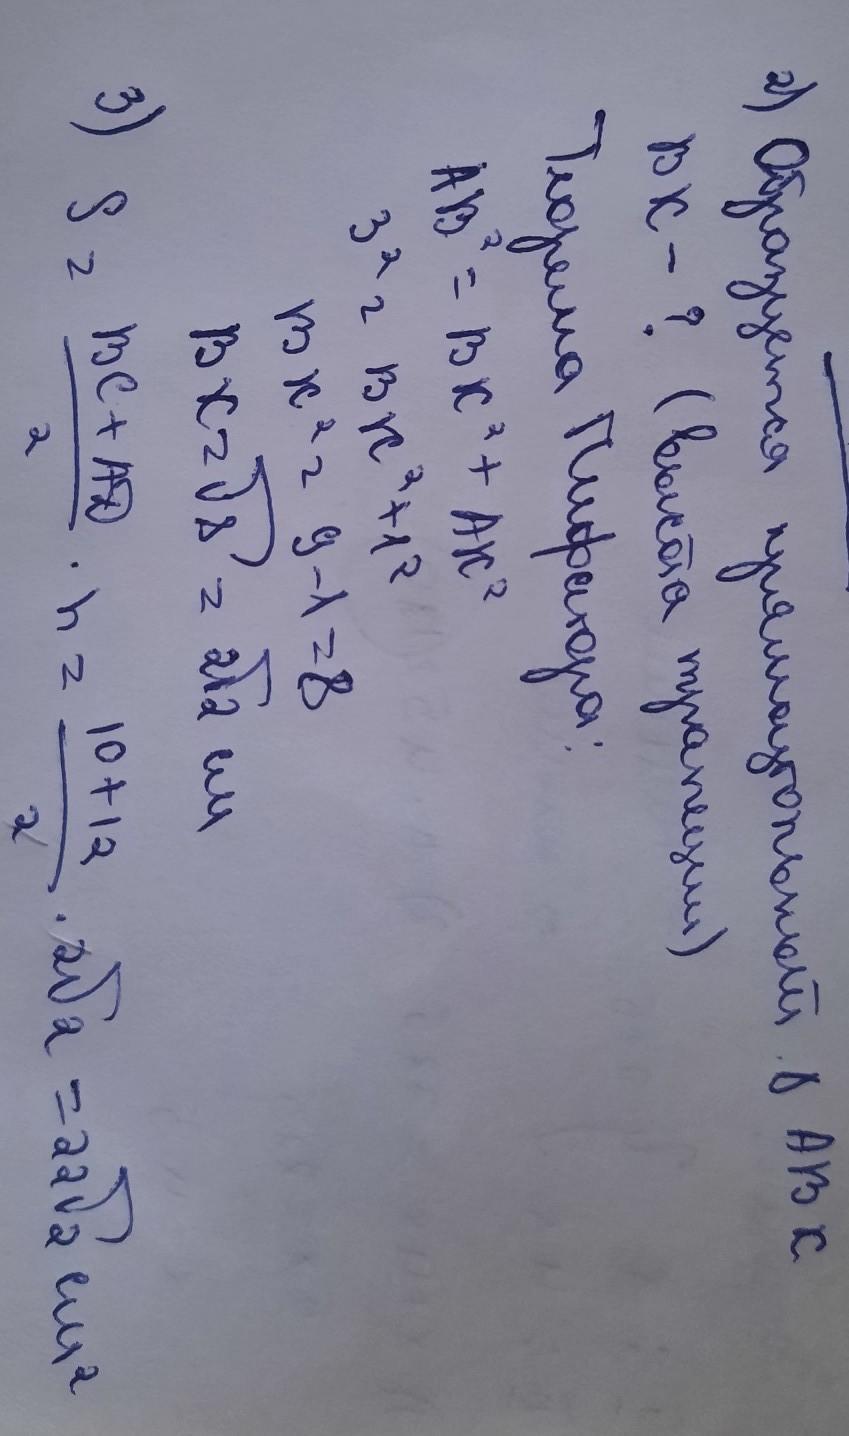 2) Образуется прямоугольный Δ ABK
BK - ? (высота трапеции)
Теорема Пифагора:
AB² = BK² + AK²
3² = BK² + 1²
BK² = 9 - 1 = 8
BK = √8 = 2√2 см
3) S = (BC + AD)/2 · h = (10 + 12)/2 · 2√2 = 22√2 см²